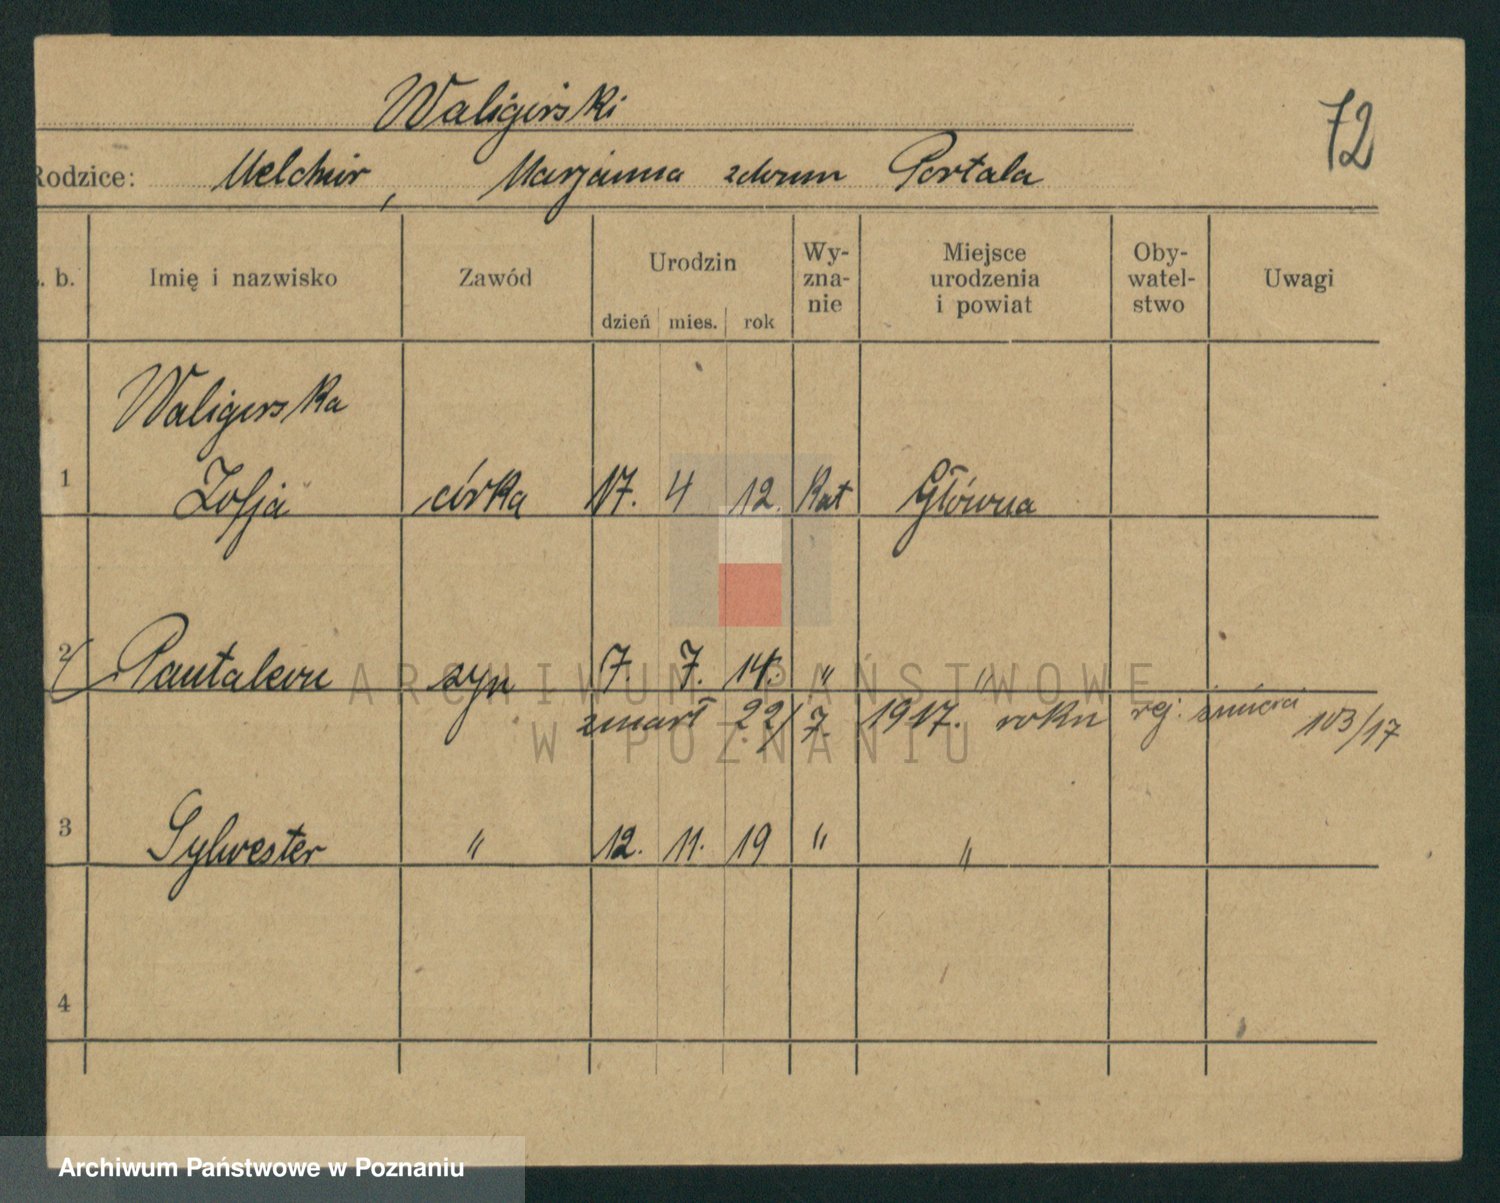 Waligórski
72
Rodzice: Melchior, Marjanna zdomu Portala
. b. Imię i nazwisko Zawód Urodzin dzień mies. rok Wy-zna-nie Miejsce urodzenia i powiat Oby-watel-stwo Uwagi
Waligorska
1 Zofja córka 17. 4 12. Kat Główna
2 Pantaleon syn 7. 7. 14. " "
zmarł 22/7. 1917. roku rej. śmierci 103/17
3 Sylwester " 12. 11. 19 " "
4
ARCHIWUM PAŃSTWOWE
W POZNANIU
Archiwum Państwowe w Poznaniu